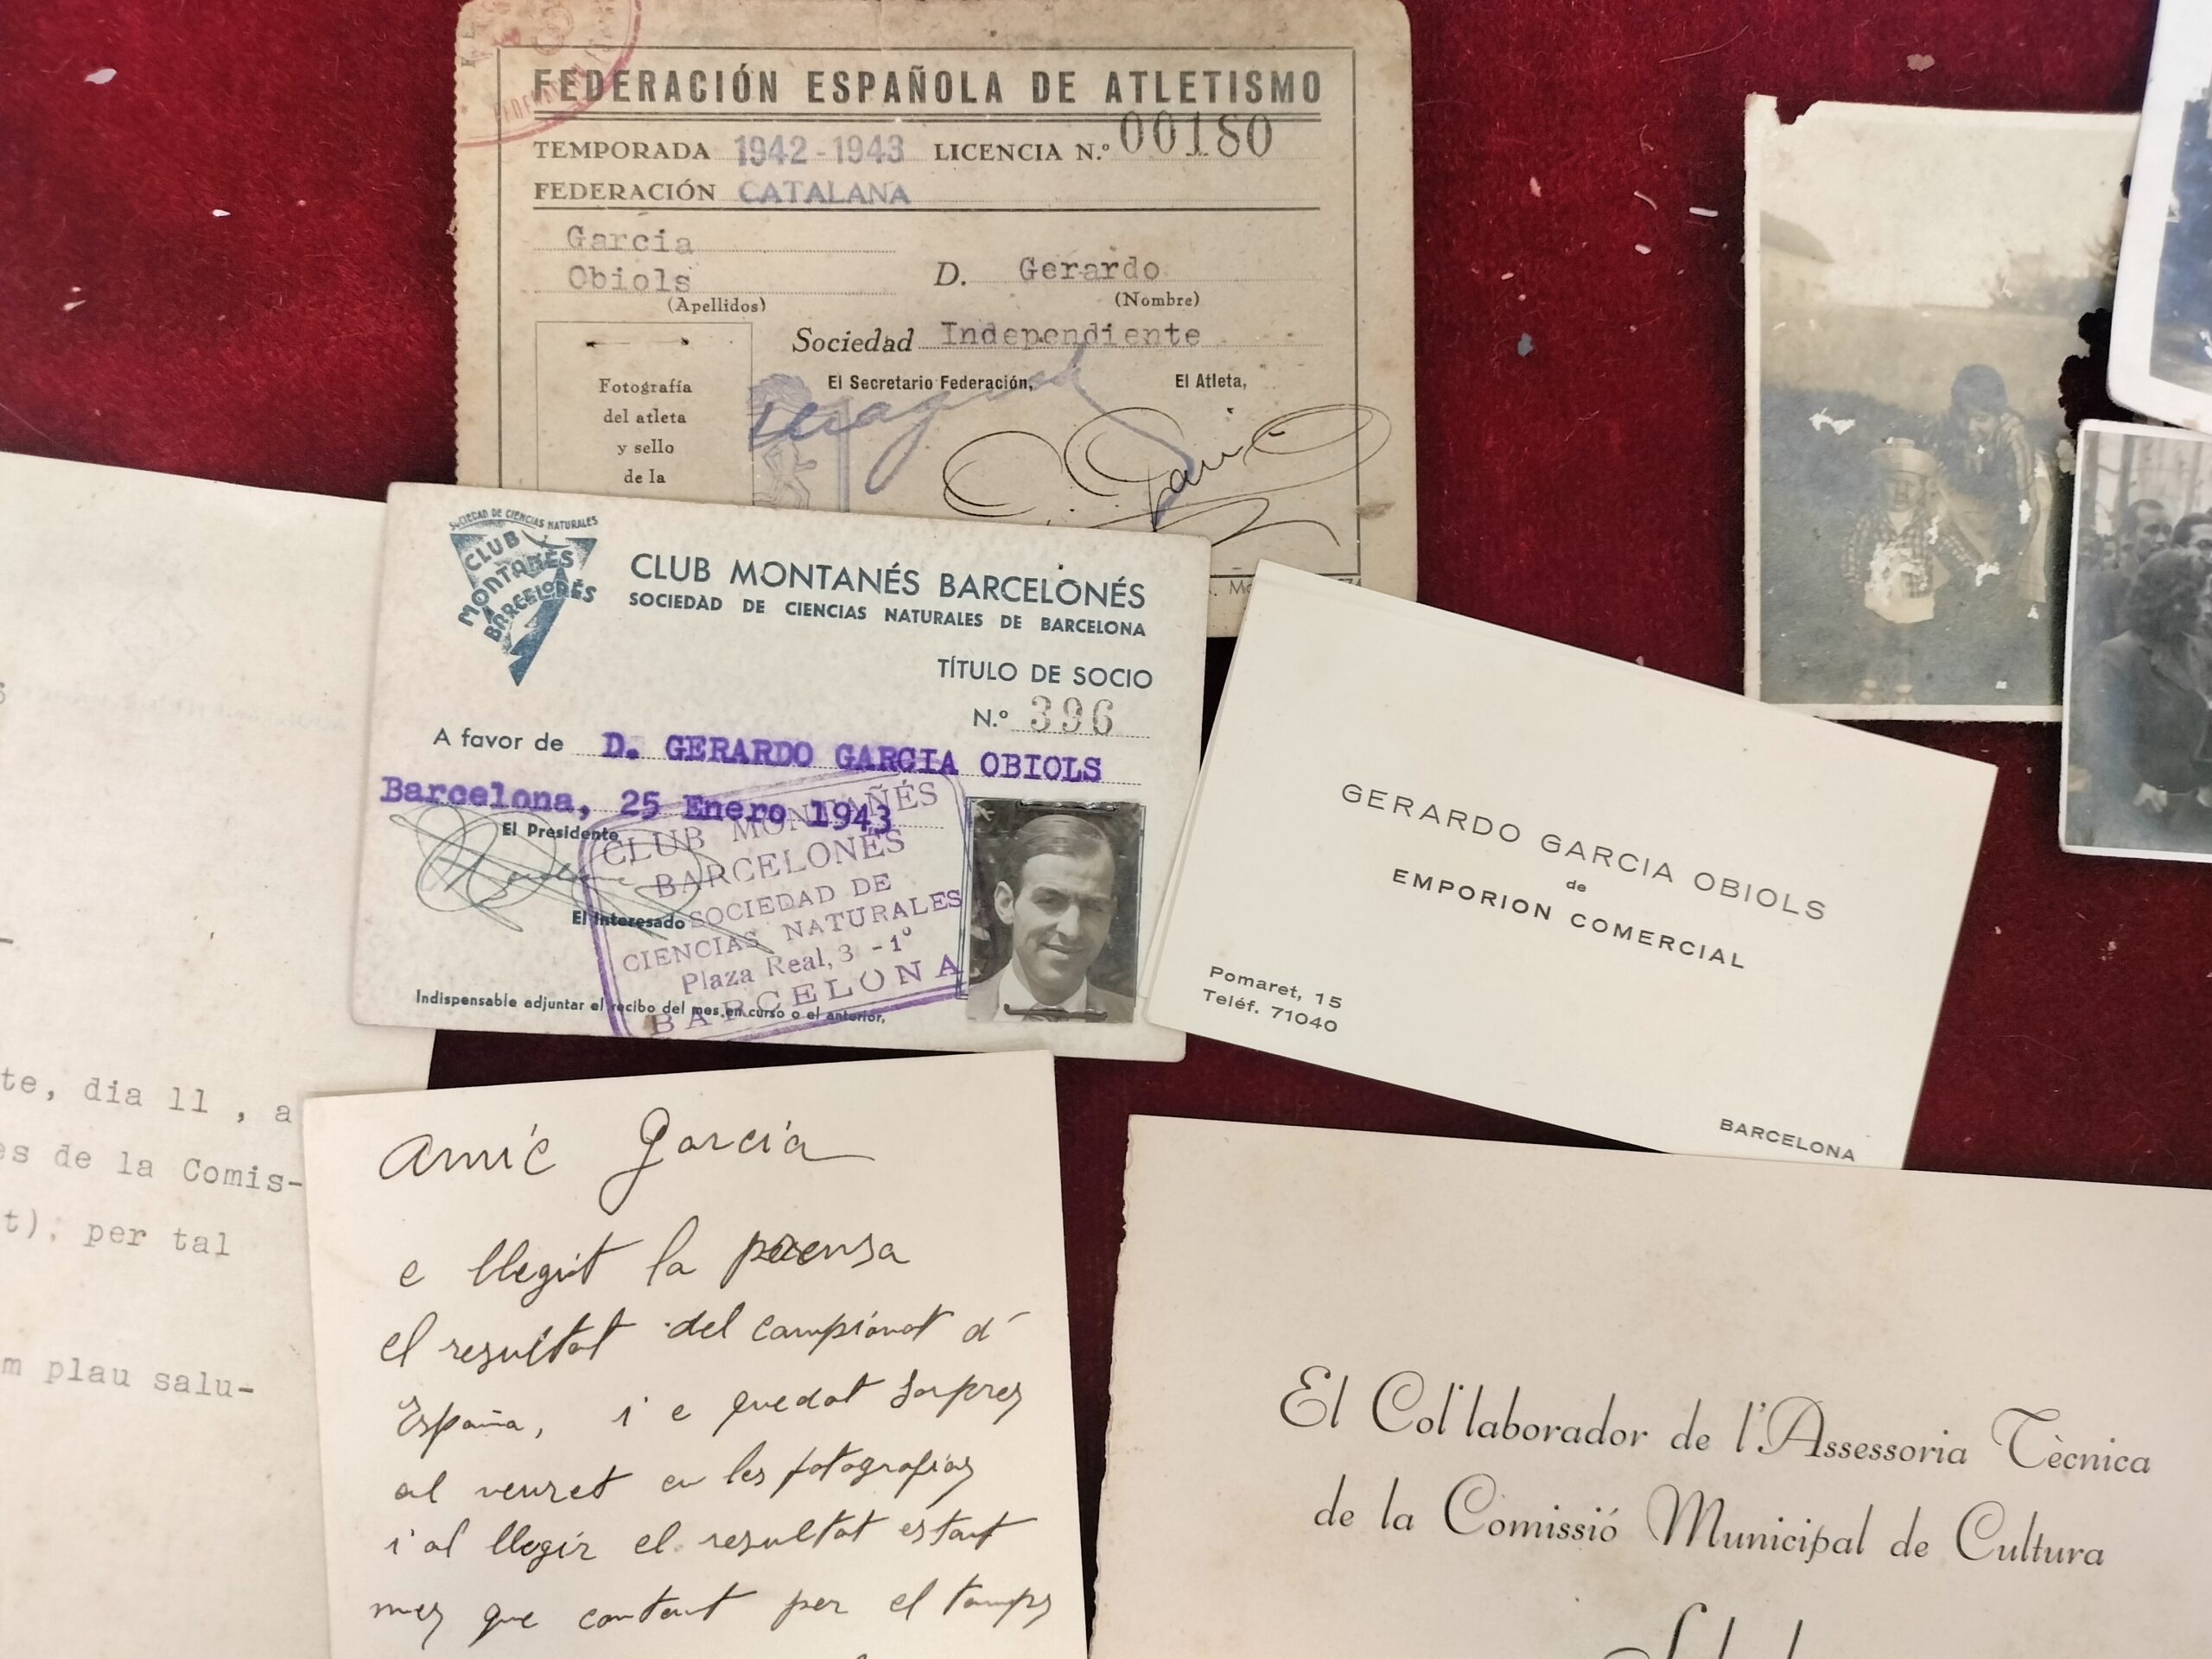 FEDERACIÓN ESPAÑOLA DE ATLETISMO
TEMPORADA 1942-1943 LICENCIA N.º 00180
FEDERACIÓN CATALANA
Garcia
Obiols
(Apellidos)
D. Gerardo
(Nombre)
Sociedad Independiente
El Secretario Federación,
El Atleta,
Fotografía
del atleta
y sello
de la
SOCIEDAD DE CIENCIAS NATURALES
CLUB
MONTAÑÉS
BARCELONÉS
CLUB MONTANÉS BARCELONÉS
SOCIEDAD DE CIENCIAS NATURALES DE BARCELONA
TÍTULO DE SOCIO
N.º 396
A favor de D. GERARDO GARCIA OBIOLS
Barcelona, 25 Enero 1943
El Presidente
El Interesado
Indispensable adjuntar el recibo del mes en curso o el anterior,
CLUB MONTAÑÉS
BARCELONÉS
SOCIEDAD DE
CIENCIAS NATURALES
Plaza Real, 3 - 1º
BARCELONA
GERARDO GARCIA OBIOLS
de
EMPORION COMERCIAL
Pomaret, 15
Teléf. 71040
BARCELONA
te, dia 11 , a
es de la Comis-
t), per tal
m plau salu-
Amic Garcia
e llegit la prensa
el resultat del campionat d'
España, i e quedat sorpres
al veuret en les fotografias
i al llegir el resultat estant
mes que content per el temps
El Col·laborador de l'Assessoria Tècnica
de la Comissió Municipal de Cultura